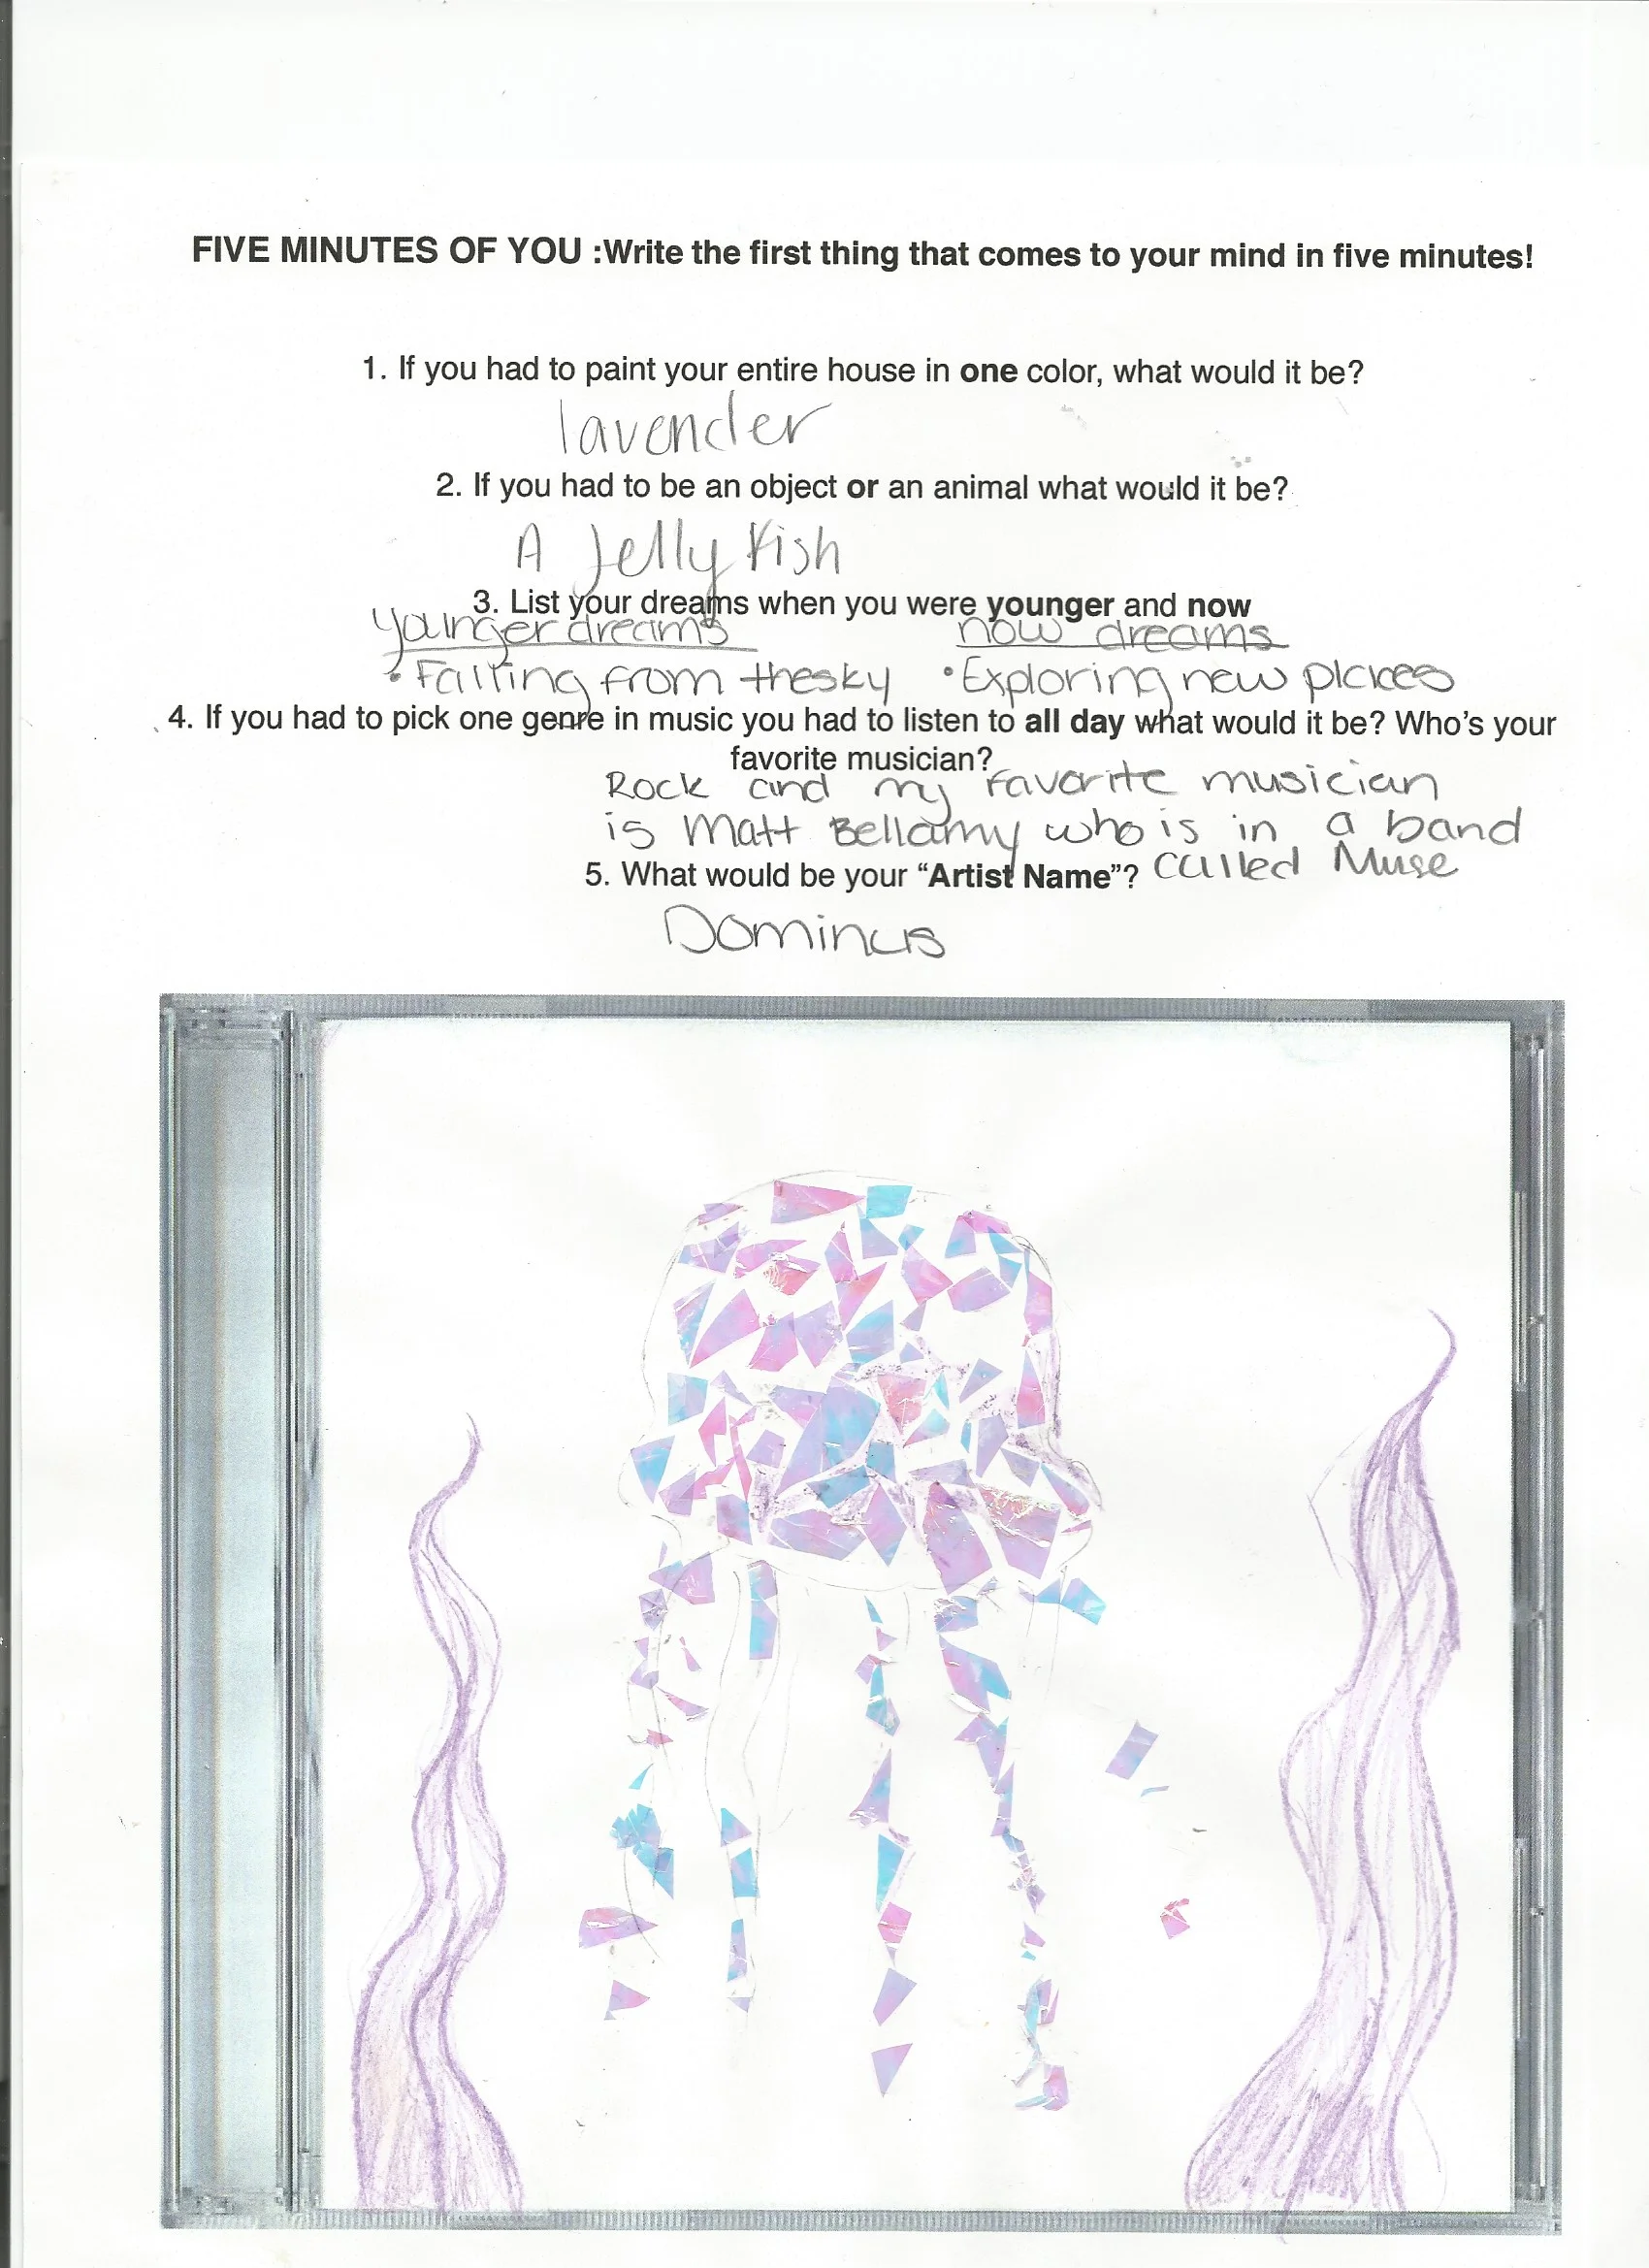 FIVE MINUTES OF YOU :Write the first thing that comes to your mind in five minutes!
1. If you had to paint your entire house in one color, what would it be?
lavender
2. If you had to be an object or an animal what would it be?
A Jelly Fish
3. List your dreams when you were younger and now
younger dreams now dreams
• Falling from thesky • Exploring new places
4. If you had to pick one genre in music you had to listen to all day what would it be? Who's your
favorite musician?
Rock and my favorite musician
is Matt Bellamy who is in a band
5. What would be your “Artist Name”? called Muse
Dominus